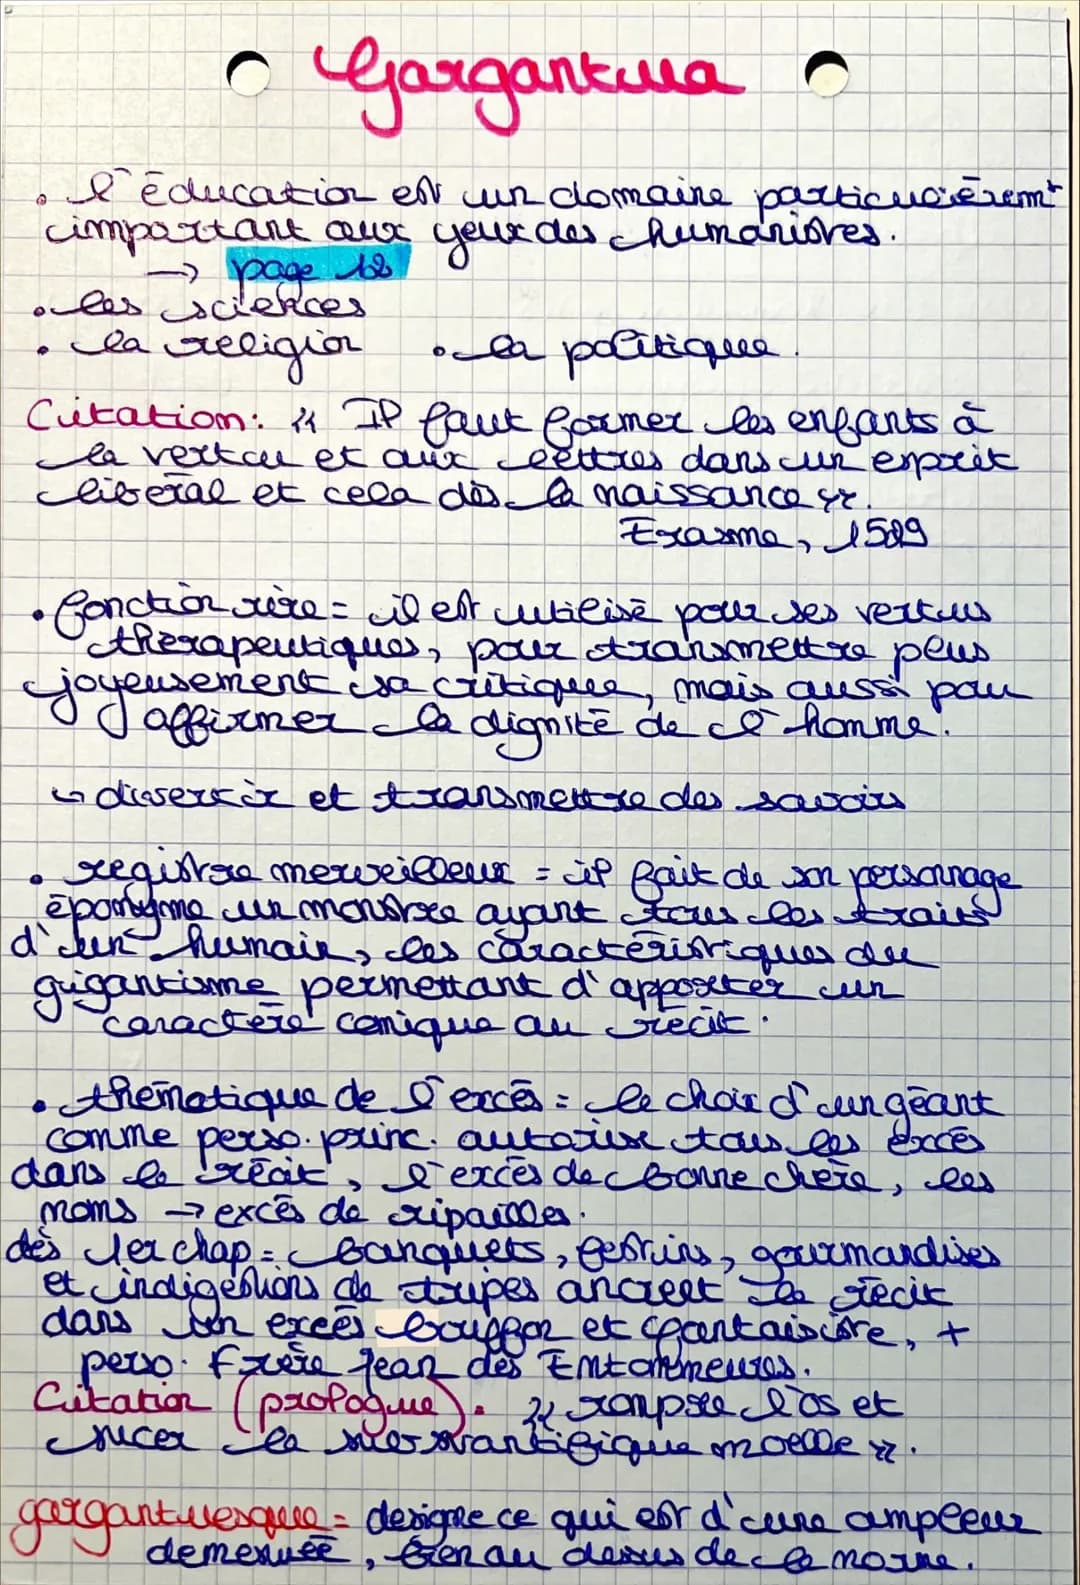 Gargantua
• l'éducation est un domaine particulièremt
important aux yeux des humanistes.
→ page 12
• les sciences
• la religion • la politique.
Citation : « Il faut former les enfants à
la vertu et aux lettres dans un esprit
libéral et cela dès la naissance ».
Erasme, 1529
• fonction rire = il est utilisé pour ses vertus
thérapeutiques, pour transmettre plus
joyeusement sa critique, mais aussi pour
affirmer la dignité de l'homme.
↳ divertir et transmettre des savoirs
• registre merveilleux = il fait de son personnage
éponyme un monstre ayant tous les traits
d'un humain, les caractéristiques du
gigantisme permettant d'apporter un
caractère comique au récit.
• thématique de l'excès = le choix d'un géant
comme perso. princ. autorise tous les excès
dans le récit, l'excès de bonne chère, les
noms → excès de ripailles.
dès 1er chap = banquets, festins, gourmandises
et indigestions de tripes ancrent le récit
dans un excès bouffon et fantaisiste, +
perso. Frère Jean des Entommeures.
Citation (prologue). « rompre l'os et
sucer la substantifique moelle ».
gargantuesque = designe ce qui est d'une ampleur
demesuée, bien au dessus de la norme.